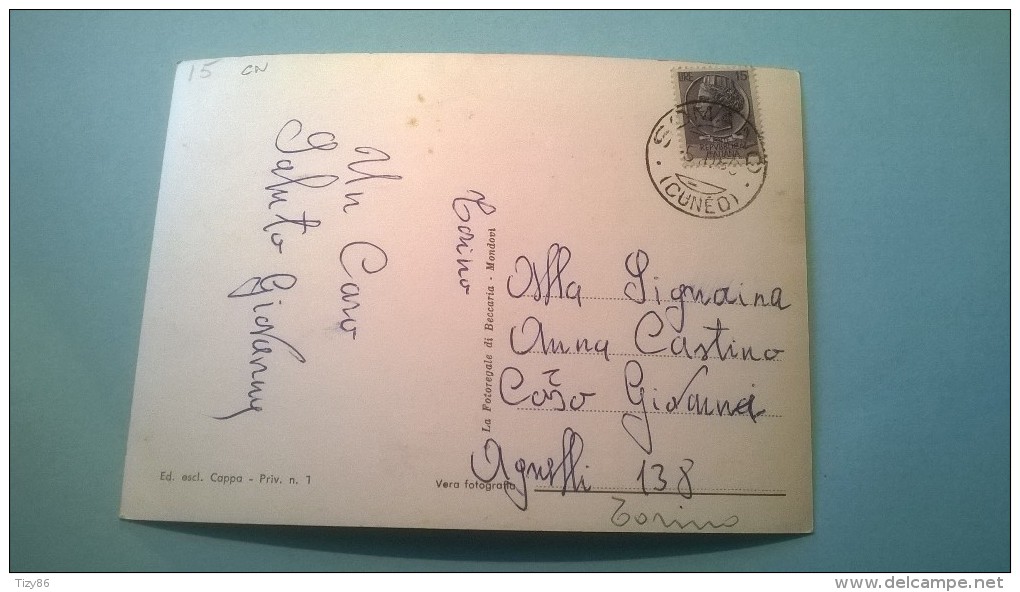 15 CN
Un Caro
Saluto Giovanni
Ed. escl. Cappa - Priv. n. 1
Torino
La Fotoregale di Beccaria - Mondovì
Vera fotografia
LIRE 15
REPUBBLICA
ITALIANA
SOMANO
(CUNEO)
Alla Signoina
Anna Castino
Corso Giovanni
Agnelli 138
Torino
Tizy86
www.delcampe.net